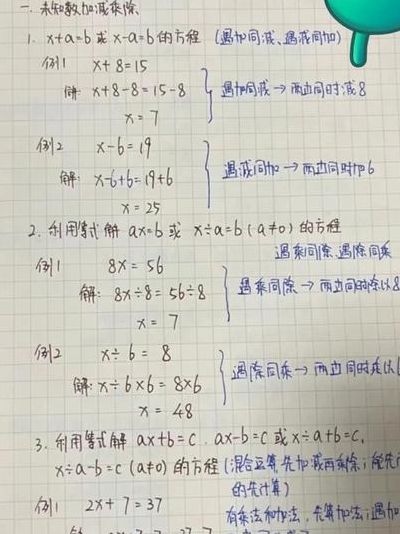 一. 未知数加减乘除
1. x+a=b 或 x-a=b 的方程 (遇加同减、遇减同加)
例1 x+8=15
解: x+8-8=15-8 遇加同减→两边同时减8
x=7
例2 x-6=19
解: x-6+6=19+6 遇减同加→两边同时加6
x=25
2. 利用等式解 ax=b 或 x÷a=b (a≠0) 的方程
遇乘同除、遇除同乘
例1 8x=56
解: 8x÷8=56÷8 遇乘同除→两边同时除以8
x=7
例2 x÷6=8
解: x÷6×6=8×6 遇除同乘→两边同时乘以
x=48
3. 利用等式解 ax+b=c. ax-b=c 或 x÷a+b=c,
x÷a-b=c (a≠0) 的方程 (混合运算,先加减再乘除;能先
的先计算)
例1 2x+7=37 有乘法和加法,先算加法;遇加